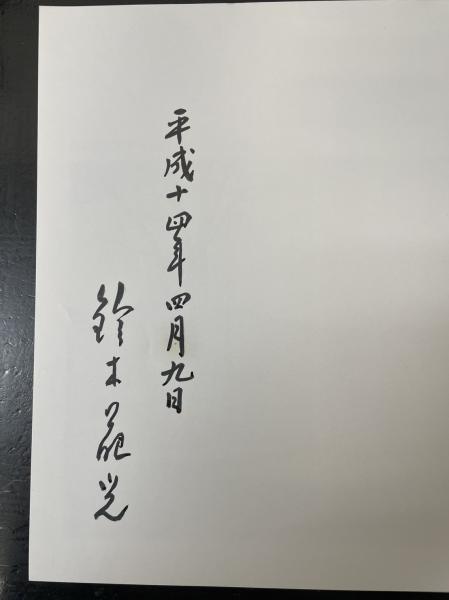 平成十四年四月九日
鈴木範光